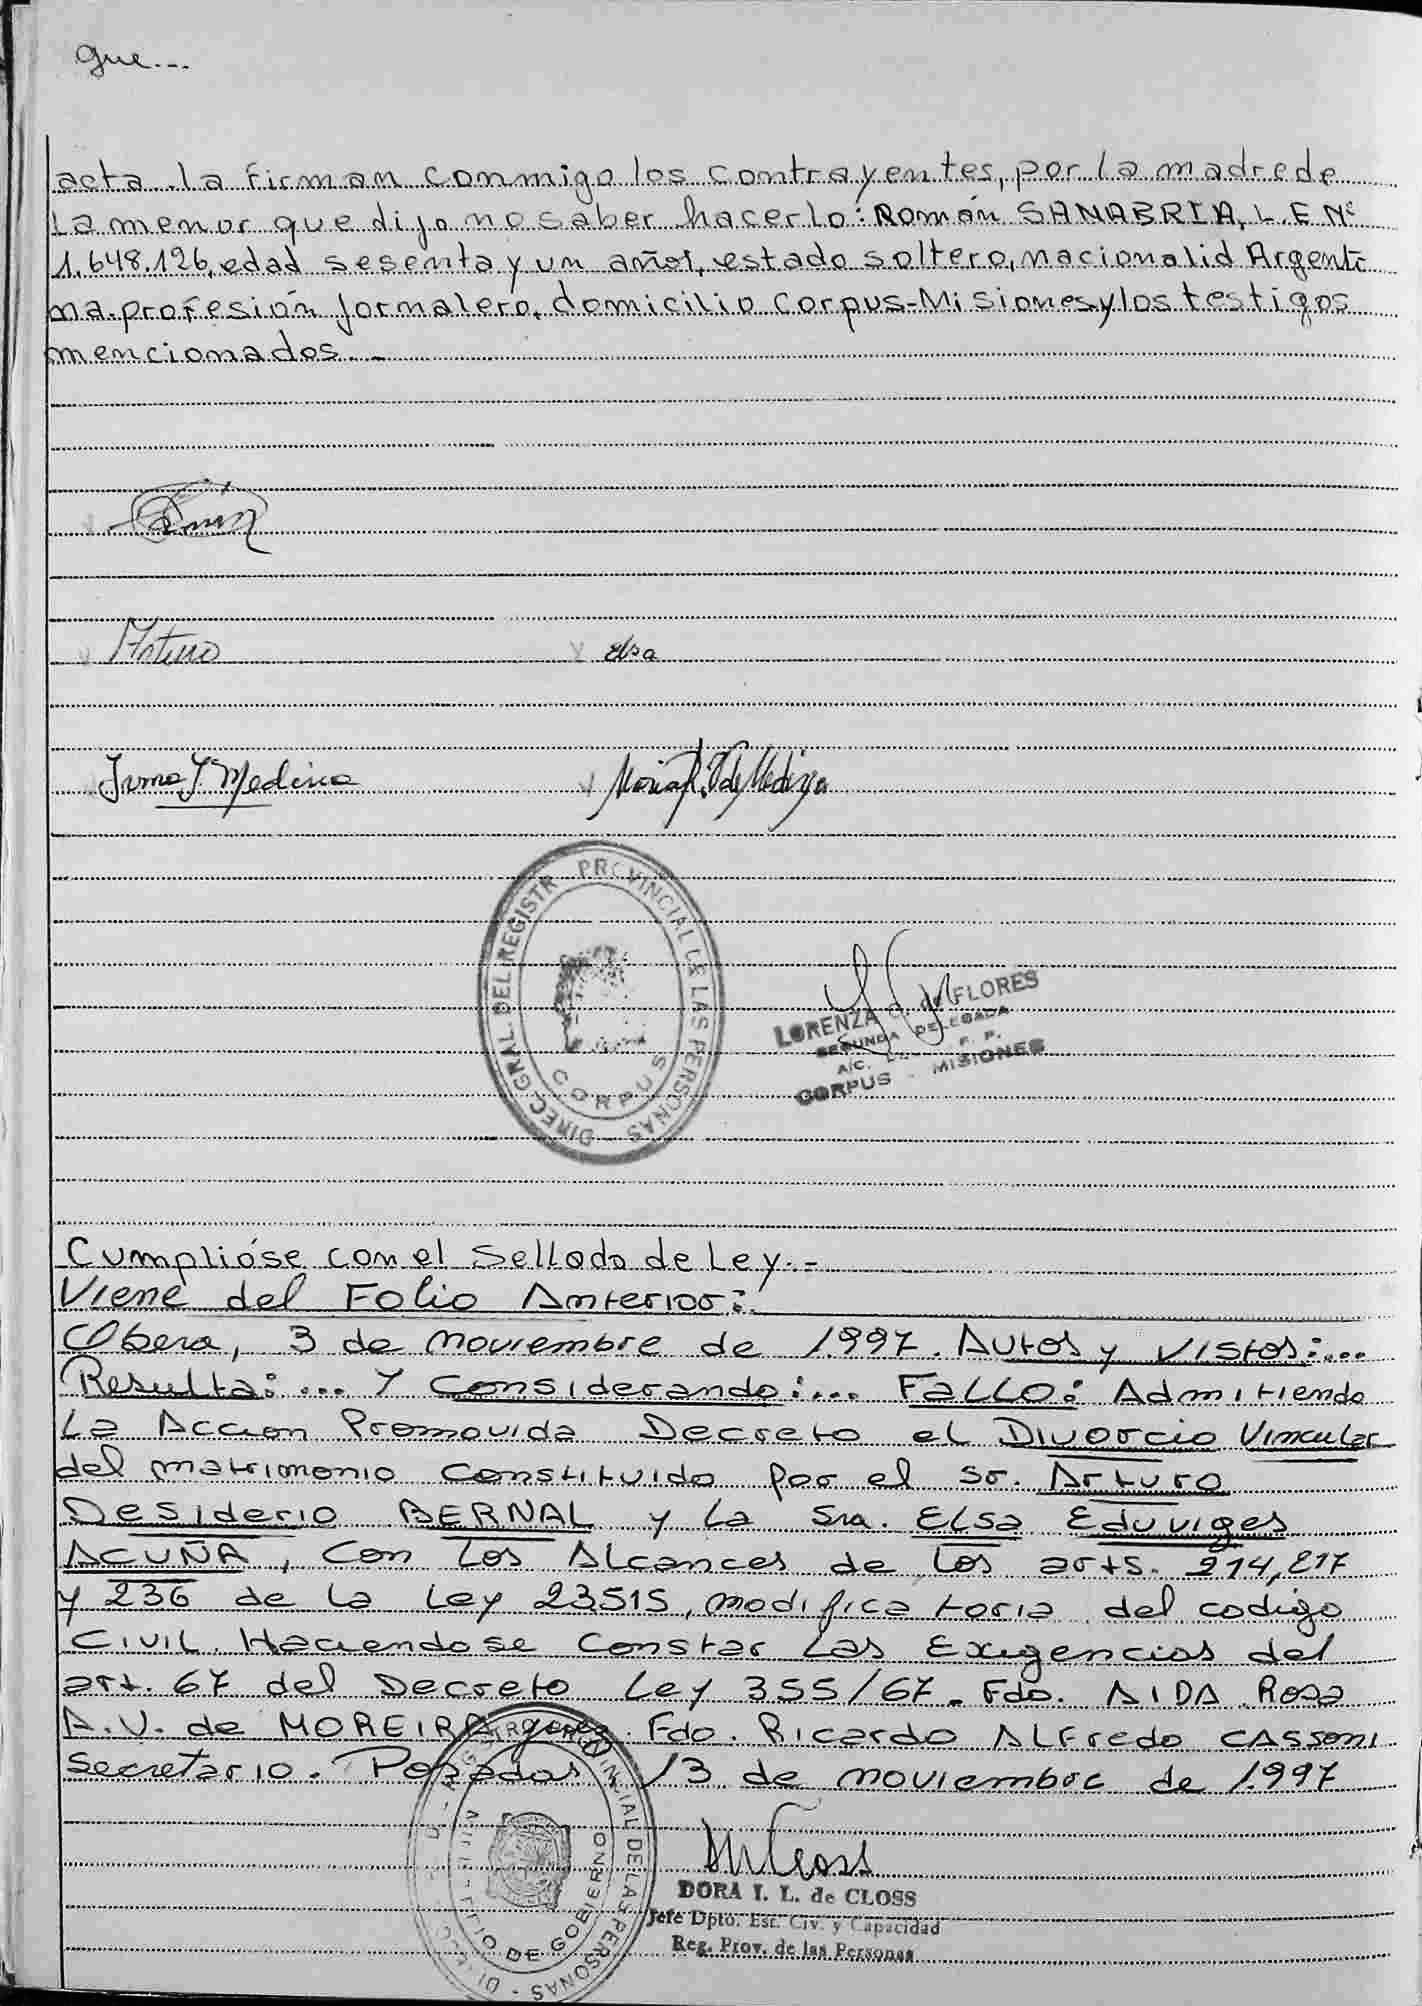 que...
acta. la firman conmigo los contrayentes, por la madre de
la menor que dijo no saber hacerlo: Román SANABRIA, L.E Nº
1.648.126, edad sesenta y un años, estado soltero, nacionalid Argenti
na. profesión jornalero, domicilio Corpus-Misiones y los testigos
mencionados. -
Arturo Elsa
Irma Y. Medina María R. de Medina
DIREC. GRAL. DEL REGISTR PROVINCIAL DE LAS PERSONAS
CORPUS
LORENZA de FLORES
SEGUNDA DELEGADA
A/C. R. P.
CORPUS - MISIONES
Cumplióse con el Sellado de Ley. -
Viene del Folio Anterior:
Obera, 3 de noviembre de 1.997. Autos y Vistos:...
Resulta:... Y Considerando:... FALLO: Admitiendo
La Accion Promovida Decreto el Divorcio Vincular
del matrimonio constituido por el Sr. Arturo
Desiderio BERNAL y La Sra. Elsa Eduviges
ACUÑA, con Los Alcances de los arts. 214, 217
y 236 de la Ley 23515, modificatoria del codigo
Civil. Haciendose constar Las Exigencias del
art. 67 del Decreto Ley 355/67. Fdo. AIDA Rosa
A.V. de MOREIRA Juez. Fdo. Ricardo Alfredo CASSONI
Secretario. Posadas 13 de noviembre de 1.997
REGISTRO PROVINCIAL DE LAS PERSONAS
MINISTERIO DE GOBIERNO
DORA I. L. de CLOSS
Jefe Dpto. Est. Civ. y Capacidad
Reg. Prov. de las Personas